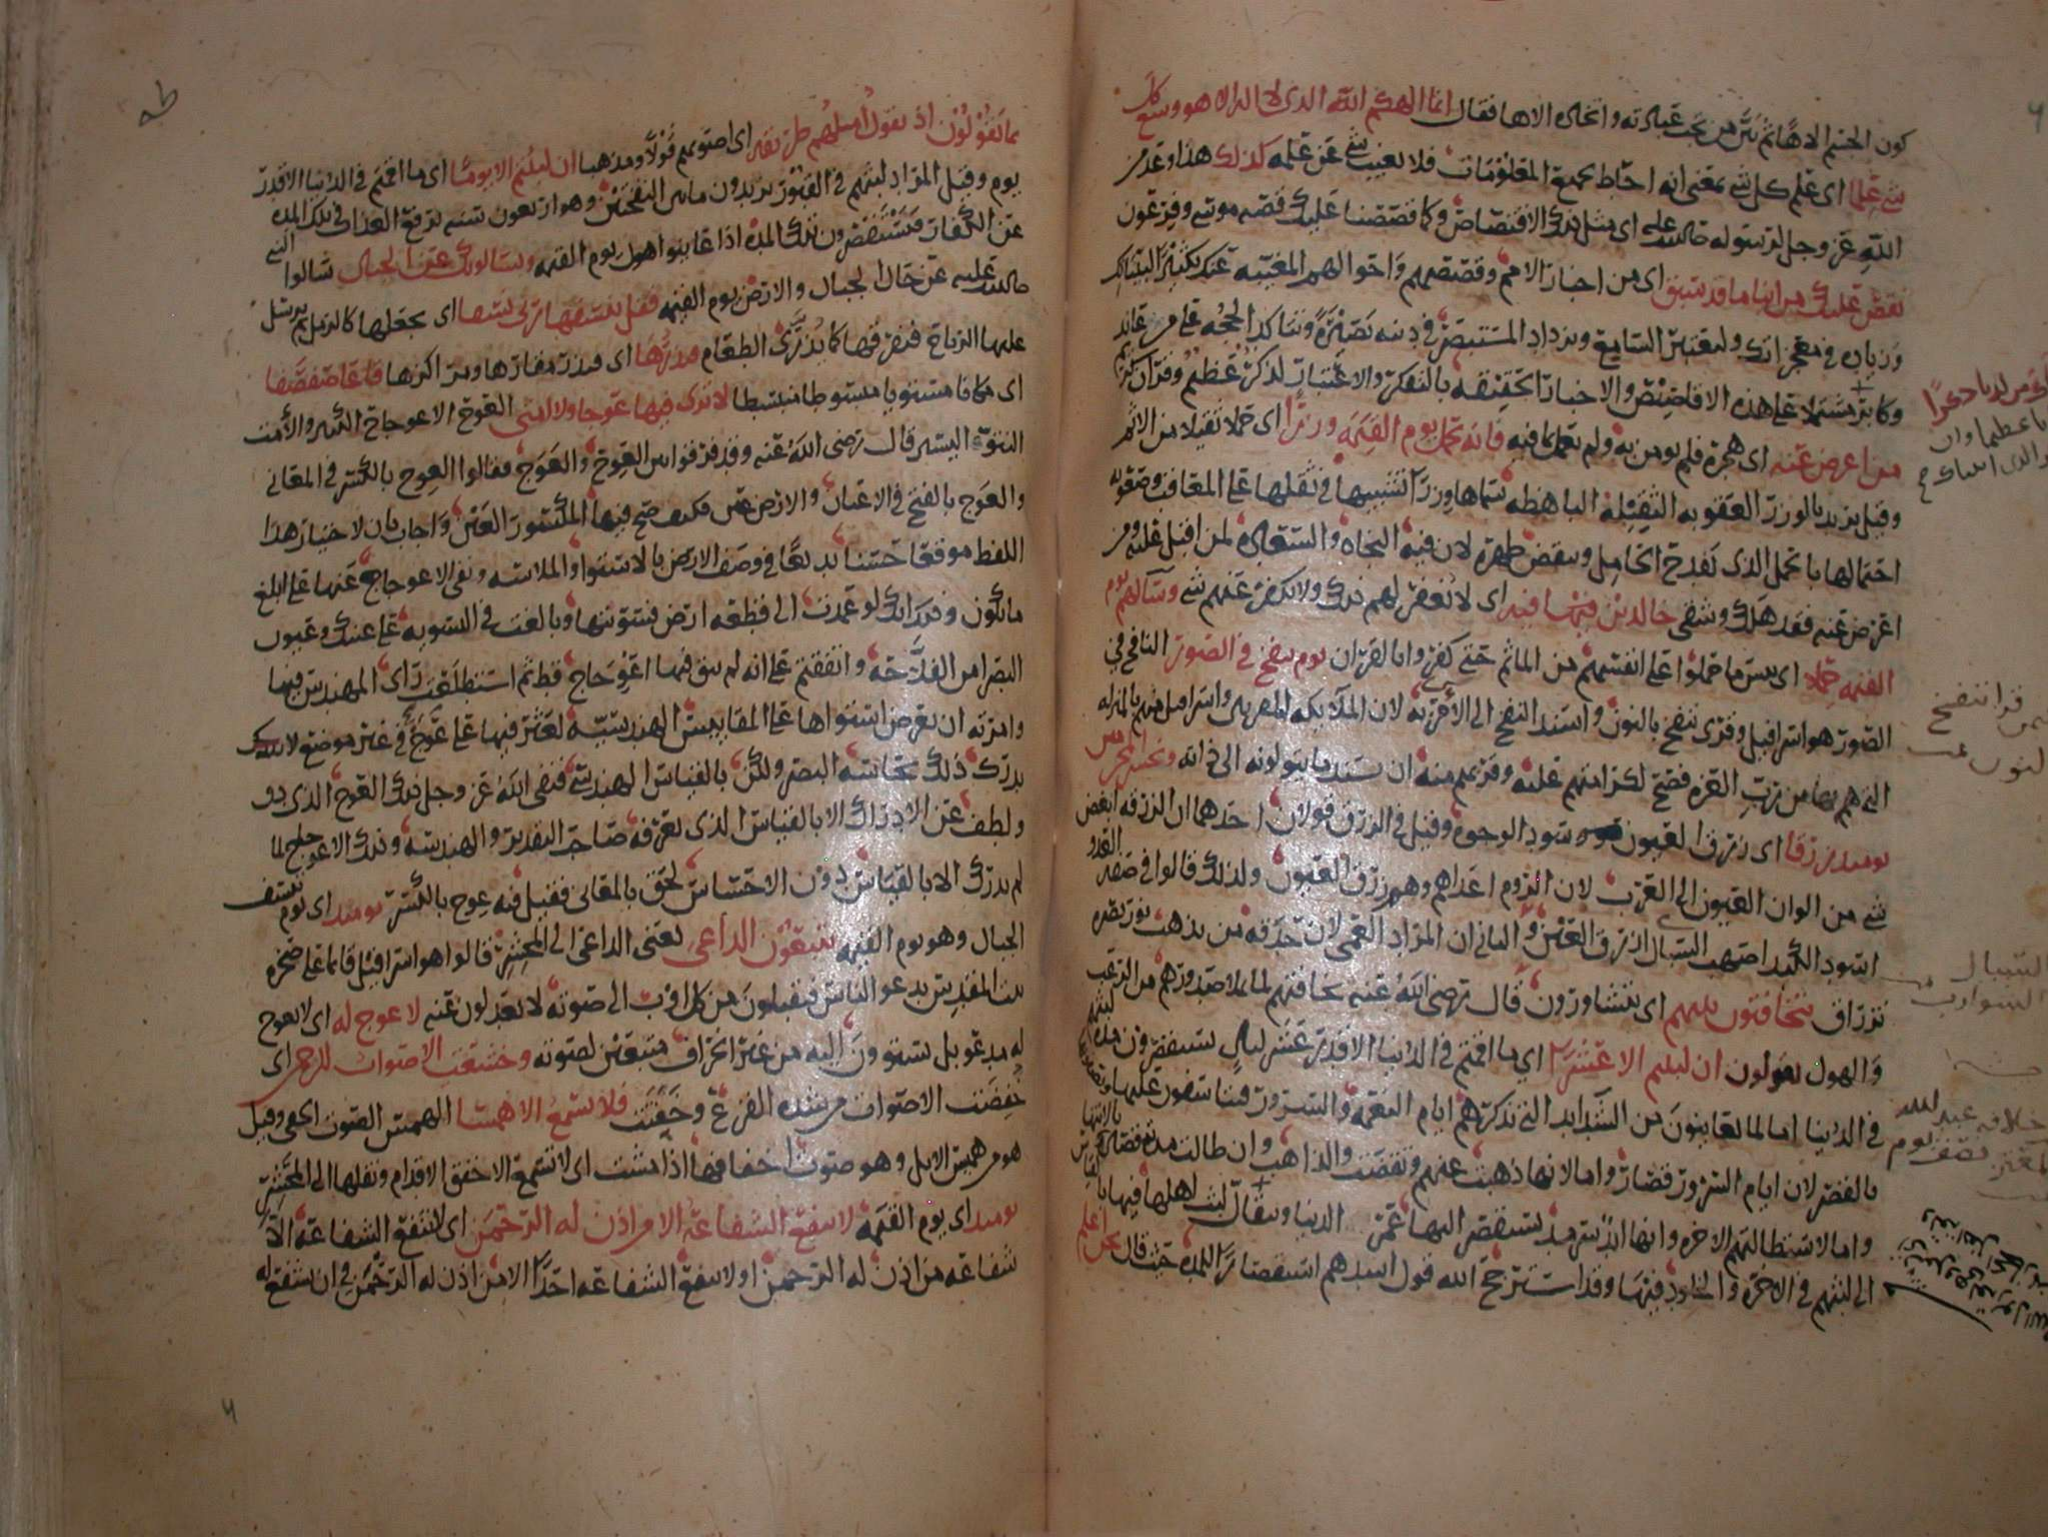 كون الجسم الاها ثم بين من يجب عبادته واتخاذه الاها فقال انما الهكم الله الذي لا اله الا هو وسع كل
شي علما اي علم كل شي بمعنى انه احاط بجميع المعلومات فلا يغيب شي عن علمه كذلك هذا وعد من
الله عز وجل لرسوله صلى الله عليه اي مثل ذلك الاقتصاص وكما قصصنا عليك قصه موسى وفرعون
نقص عليك من انبا ما قد سبق اي من اخبار الامم وقصصهم واحوالهم المغيبه عنك تكثيرا لبيناتك
وزيادة في معجزاتك وليعتبر السامع ويزداد المستبصر في دينه بصيرة وتتاكد الحجه على من عاند
وكابر مشتملا على هذه الاقاصيص والاخبار الحقيقه بالتفكر والاعتبار لذكر عظيم وقران كريم
من اعرض عنه اي هجره فلم يومن به ولم يعمل بما فيه فانه يحمل يوم القيمه وزرا اي حملا ثقيلا من الاثم
وقيل يريد بالوزر العقوبه الثقيله الباهظه سماها وزرا تشبيها في ثقلها على المعاقب وصعوبه
احتمالها بالحمل الذي يفدح الحامل وينقض ظهره لان فيه النجاه والسعادة لمن اقبل عليه ومن
اعرض عنه فقد هلك وشقى خالدين فيها فيه اي لا يغفر لهم ذلك ولا يكفر عنهم شي وسآ لهم يوم
القيمه حملا اي بيس ما حملوا على انفسهم من الماثم حتى كفروا بالقران يوم ينفخ في الصور النافخ في
الصور هو اسرافيل وقرى ننفخ بالنون واسند النفخ الى الآمر به لان الملآيكه المقربين واسرافيل منهم بالمنزله
التي هم بها من رب العزه فصح لكرامتهم عليه وقربهم منه ان يسند ما يتولونه الى ذاته ونحشر المجرمين
يومئد زرقا اي زرق العيون سود الوجوه وقيل في الزرق قولان احدهما ان الزرقه ابغض
شي من الوان العيون الى العرب لان الروم اعداهم وهم زرق العيون ولذلك قالوا في صفه العدو
اسود الكبد اصهب السبال ازرق العين والثاني ان المراد العمى لان حدقه من يذهب نور بصره
تزراق يتخافتون بينهم اي يتشاورون قال رضى الله عنه تخافتهم لما يملا صدورهم من الرعب
والهول يقولون ان لبثتم الا عشرا اي ما اقمتم في الدنيا الا قدر عشر ليال يستقصرون مده لبثهم
في الدنيا اما لما يعاينون من الشدايد التي تذكرهم ايام النعمه والسرور فيتاسفون عليها
بالقصر لان ايام السرور قصار واما لانها ذهبت عنهم وتقضت والذاهب وان طالت مدته قصار بالانتها
واما لاستطالتهم الاخره وانها ابد سرمد يستقصر اليها عمر الدنيا ويتقال لبث اهلها فيها بالقياس
الى لبثهم في الاخره والخلود فيها وقد استرجح الله قول اشدهم استقصارا للمده حيث قال نحن اعلم
قد انتفخ
السبال
الشوارب
طه
بما يقولون اذ يقول امثلهم طريقه اي اصوبهم قولا ومذهبا ان لبثتم الا يوما اي ما اقمتم في الدنيا الا قدر
يوم وقيل المراد لبثهم في القبور يريدون ما بين النفختين وهو اربعون سنه يرفع العذاب في تلك المده
عن الكفار فيستقصرون تلك المده اذا عاينوا اهول يوم القيمه ويسالونك عن الجبال سالوا النبي
صلى الله عليه عن حال الجبال والارض يوم القيمه فقل ينسفها ربي نسفا اي يجعلها كالرمل ثم يرسل
عليها الرياح فتفرقها كما يذرى الطعام فيذرها اي فيذر مقارها ومراكزها قاعا صفصفا
اي مكانا مستويا منبسطا لا ترى فيها عوجا ولا امتا العوج الاعوجاج اليسير والأمت
النتوء اليسير قال رضى الله عنه وقد فرقوا بين العِوج والعَوج فقالوا العِوج بالكسر في المعاني
والعَوج بالفتح في الاعيان والارض عين فكيف صح فيها المكسور العين واجاب بان لاختيار هذا
اللفظ موقعا حسنا بديعا في وصف الارض بالاستوا والملاسه ونفي الاعوجاج عنها على ابلغ
ما يكون وذلك انك لو عمدت الى قطعه ارض فسويتها وبالغت في التسويه على عينك وعيون
البصرا من الفلاحه واتفقتم على انه لم يبق فيها اعوجاج قط ثم استطلعت راى المهندس فيها
وامرته ان يعرض استواها على المقاييس الهندسيه لعثر فيها على عوج في غير موضع لا
يدرك ذلك بحاسه البصر ولكن بالقياس الهندسي فنفى الله عز وجل ذلك العوج الذي دق
ولطف عن الادراك الا بالقياس الذي يعرفه صاحب التقدير والهندسه وذلك الاعوجاج لما
لم يدرك الا بالقياس دون الاحساس لحق بالمعاني فقيل فيه عوج بالكسر يومئد اي يوم ينسف
الجبال وهو يوم القيمه يتبعون الداعي يعني الداعي الى المحشر قالوا هو اسرافيل قايما على صخره
بيت المقدس يدعو الناس فيقبلون من كل اوب الى صوته لا يعدلون عنه لا عوج له اي لا يعوج
له مدعو بل يستوون اليه من غير انحراف متبعين لصوته وخشعت الاصوات للرحمن اي
خفضت الاصوات من شده الفزع وخفتت فلا تسمع الا همسا الهمس الصوت الخفي وقيل
هو من هميس الابل وهو صوت اخفافها اذا مشت اي لا تسمع الا خفق الاقدام ونقلها الى المحشر
يومئد اي يوم القيمه لا تنفع الشفاعه الا من اذن له الرحمن اي لا تنفع الشفاعه الا
شفاعه من اذن له الرحمن او لا تنفع الشفاعه احدا الا من اذن له الرحمن في ان يشفع له